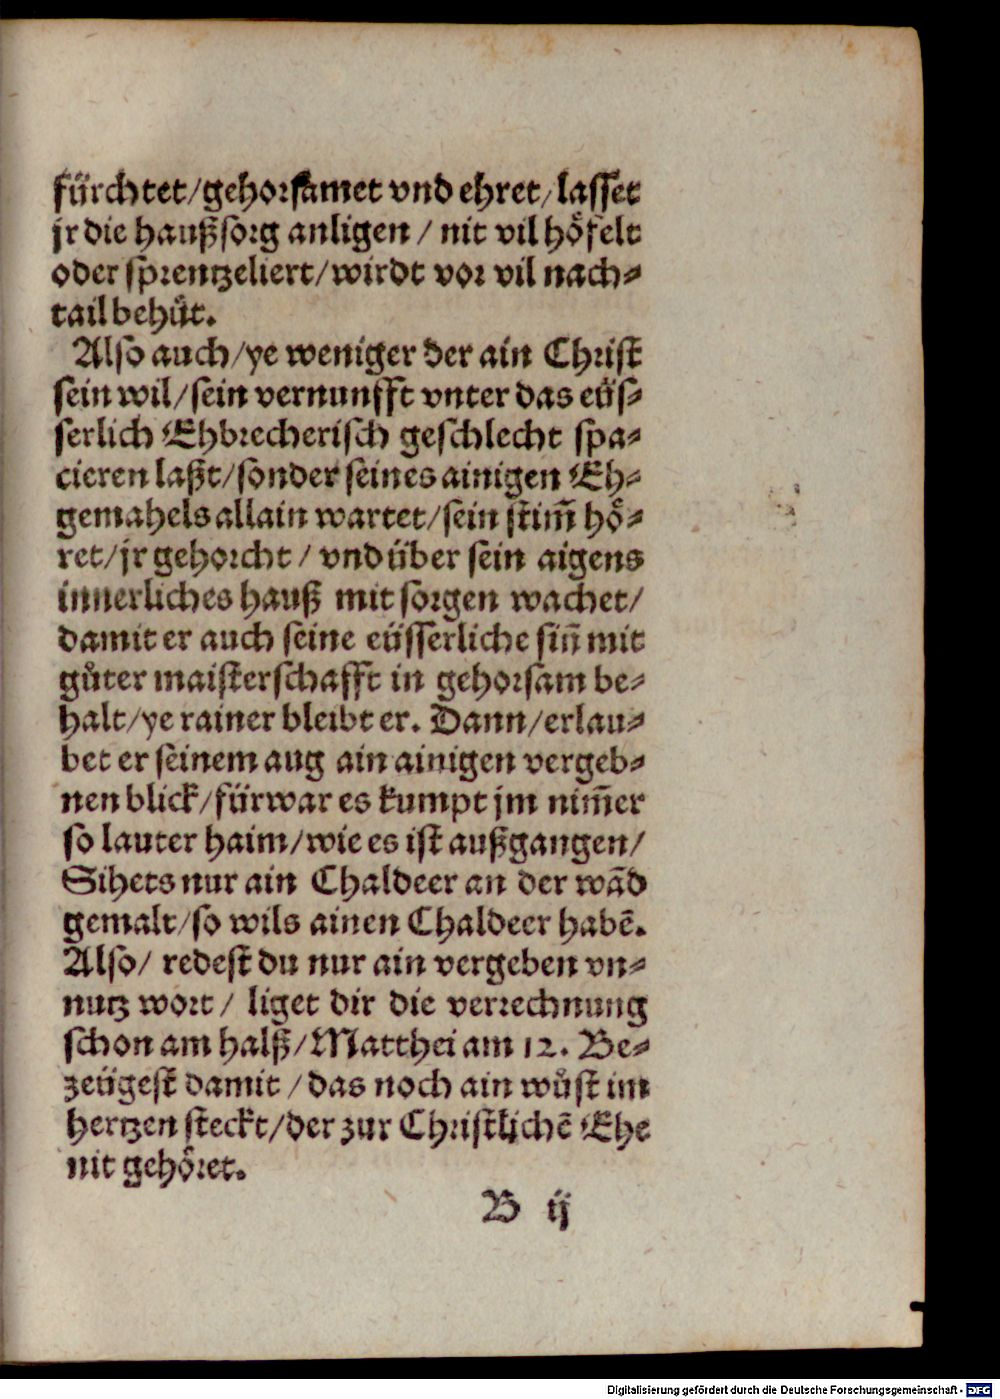 fürchtet/gehorsamet vnd ehret/lasset
jr die haußsorg anligen / nit vil hoͤfelt
oder sprentzeliert/wirdt vor vil nach-
tail behuͤt.
Also auch/ye weniger der ain Christ
sein wil/sein vernunfft vnter das eüs-
serlich Ehbrecherisch geschlecht spa-
cieren laßt/sonder seines ainigen Eh-
gemahels allain wartet/sein stim̄ hoͤ-
ret/jr gehorcht / vnd über sein aigens
innerliches hauß mit sorgen wachet/
damit er auch seine eüsserliche sin̄ mit
guͦter maisterschafft in gehorsam be-
halt/ye rainer bleibt er. Dann/erlau-
bet er seinem aug ain ainigen vergeb-
nen blick/fürwar es kumpt jm nim̄er
so lauter haim/wie es ist außgangen/
Sihets nur ain Chaldeer an der wād
gemalt/so wils ainen Chaldeer habē.
Also/ redest du nur ain vergeben vn-
nutz wort / liget dir die verrechnung
schon am halß/Matthei am 12. Be-
zeügest damit / das noch ain wuͦst im
hertzen steckt/der zur Christlichē Ehe
nit gehoͤret.
B ij
Digitalisierung gefördert durch die Deutsche Forschungsgemeinschaft - DFG